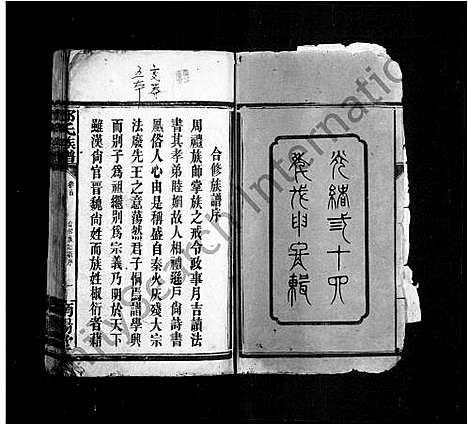 光緒二十四
年戊申安輯
合修族譜序
周禮族師掌族之戒令政事月吉讀法
書其孝弟睦婣故人相禮遜戶尙詩書
風俗人心由是稱盛自秦火灰殘大宗
法廢先王之意蕩然君子恫焉譜學興
而別子為祖繼別為宗義乃明於天下
雖漢尙官晉魏尙姓而族姓椒衍皆藉
氏族譜
卷首
南陽堂
FamilySearch International